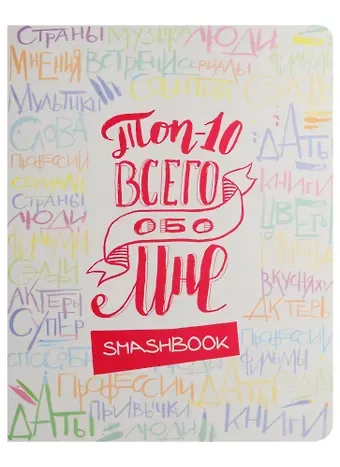 СТРАНЫ МУЗЫКА ЛЮДИ
МНЕНИЯ ВСТРЕЧИ СЕРИАЛЫ
МУЛЬТИКИ СОБЫТИЯ
СЛОВА
ПРОФЕССИИ ДАТЫ
СЕРИАЛЫ
СТРАНЫ КНИГИ
ЛЮДИ ЦВЕТА
Топ-10
ВСЕГО
ОБО
Мне
SMASHBOOK
ВКУСНЯХИ
АКТЕРЫ АКТЕРЫ
СУПЕР
ПРОФЕССИИ
СПОСОБЫ ФИЛЬМЫ
ПРОФЕССИИ ДАТЫ
ДАТЫ ПРИВЫЧКИ КНИГИ
ЛЮДИ